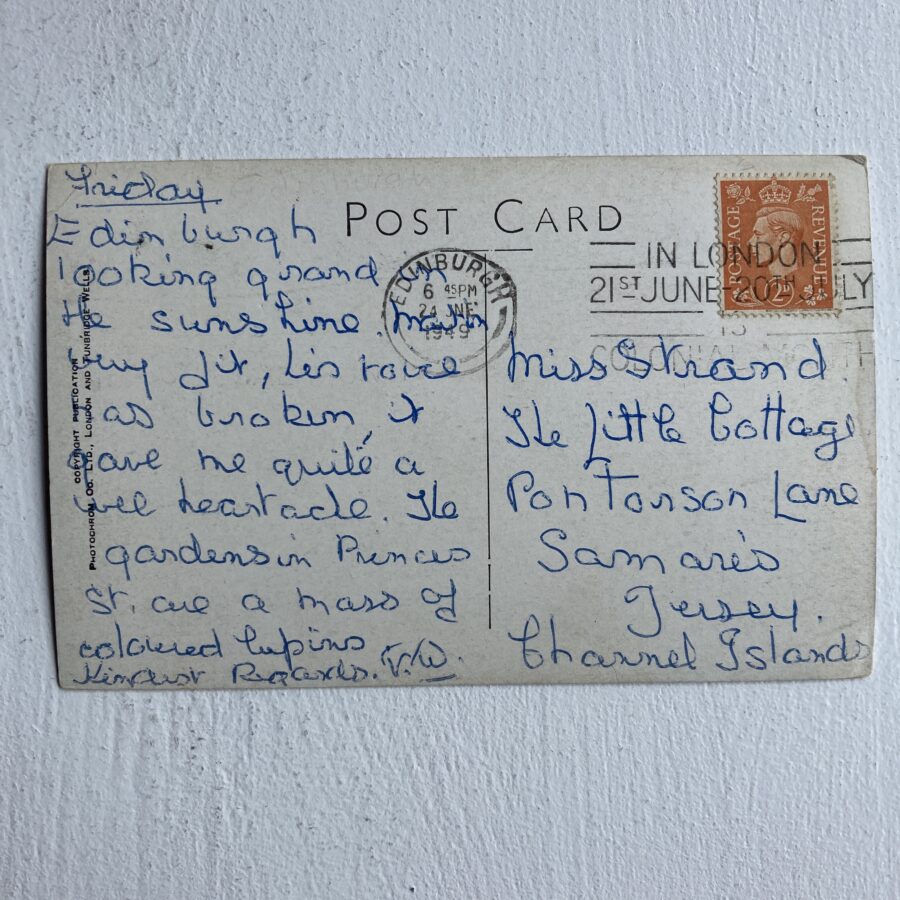 Friday
Edinburgh
looking grand in
the sunshine.
very fit, his voice
has broken, it
gave me quite a
wee heartache. The
gardens in Princes
St. are a mass of
coloured lupins
Kindest Regards. V.W.
POST CARD
EDINBURGH
6 45PM
24 JNE
1949
IN LONDON
21ST JUNE-20TH JULY
IS
COLONIAL MONTH
POSTAGE REVENUE
2D
Miss Strand.
The Little Cottage
Pontorson Lane
Samarés
Jersey.
Channel Islands
COPYRIGHT PUBLICATION
PHOTOCHROM CO. LTD., LONDON AND TUNBRIDGE WELLS.